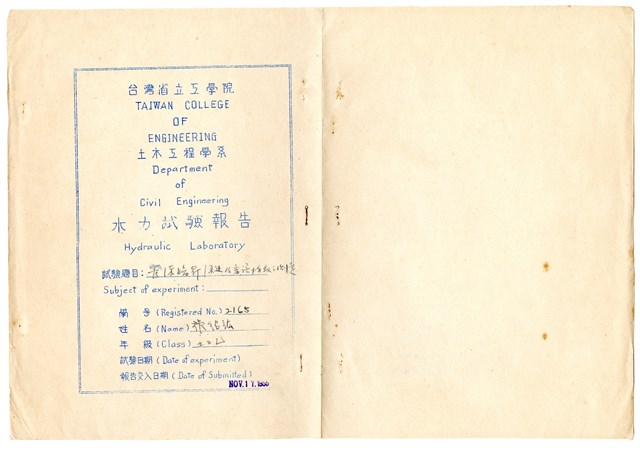 台灣省立工學院
TAIWAN COLLEGE
OF
ENGINEERING
土木工程學系
Department
of
Civil Engineering
水力試驗報告
Hydraulic Laboratory
試驗題目:
Subject of experiment:
編号(Registered No.) 2165
姓名(Name)
年級(Class)
試驗日期(Date of experiment)
報告交入日期(Date of Submitted)
NOV. 17. 1955